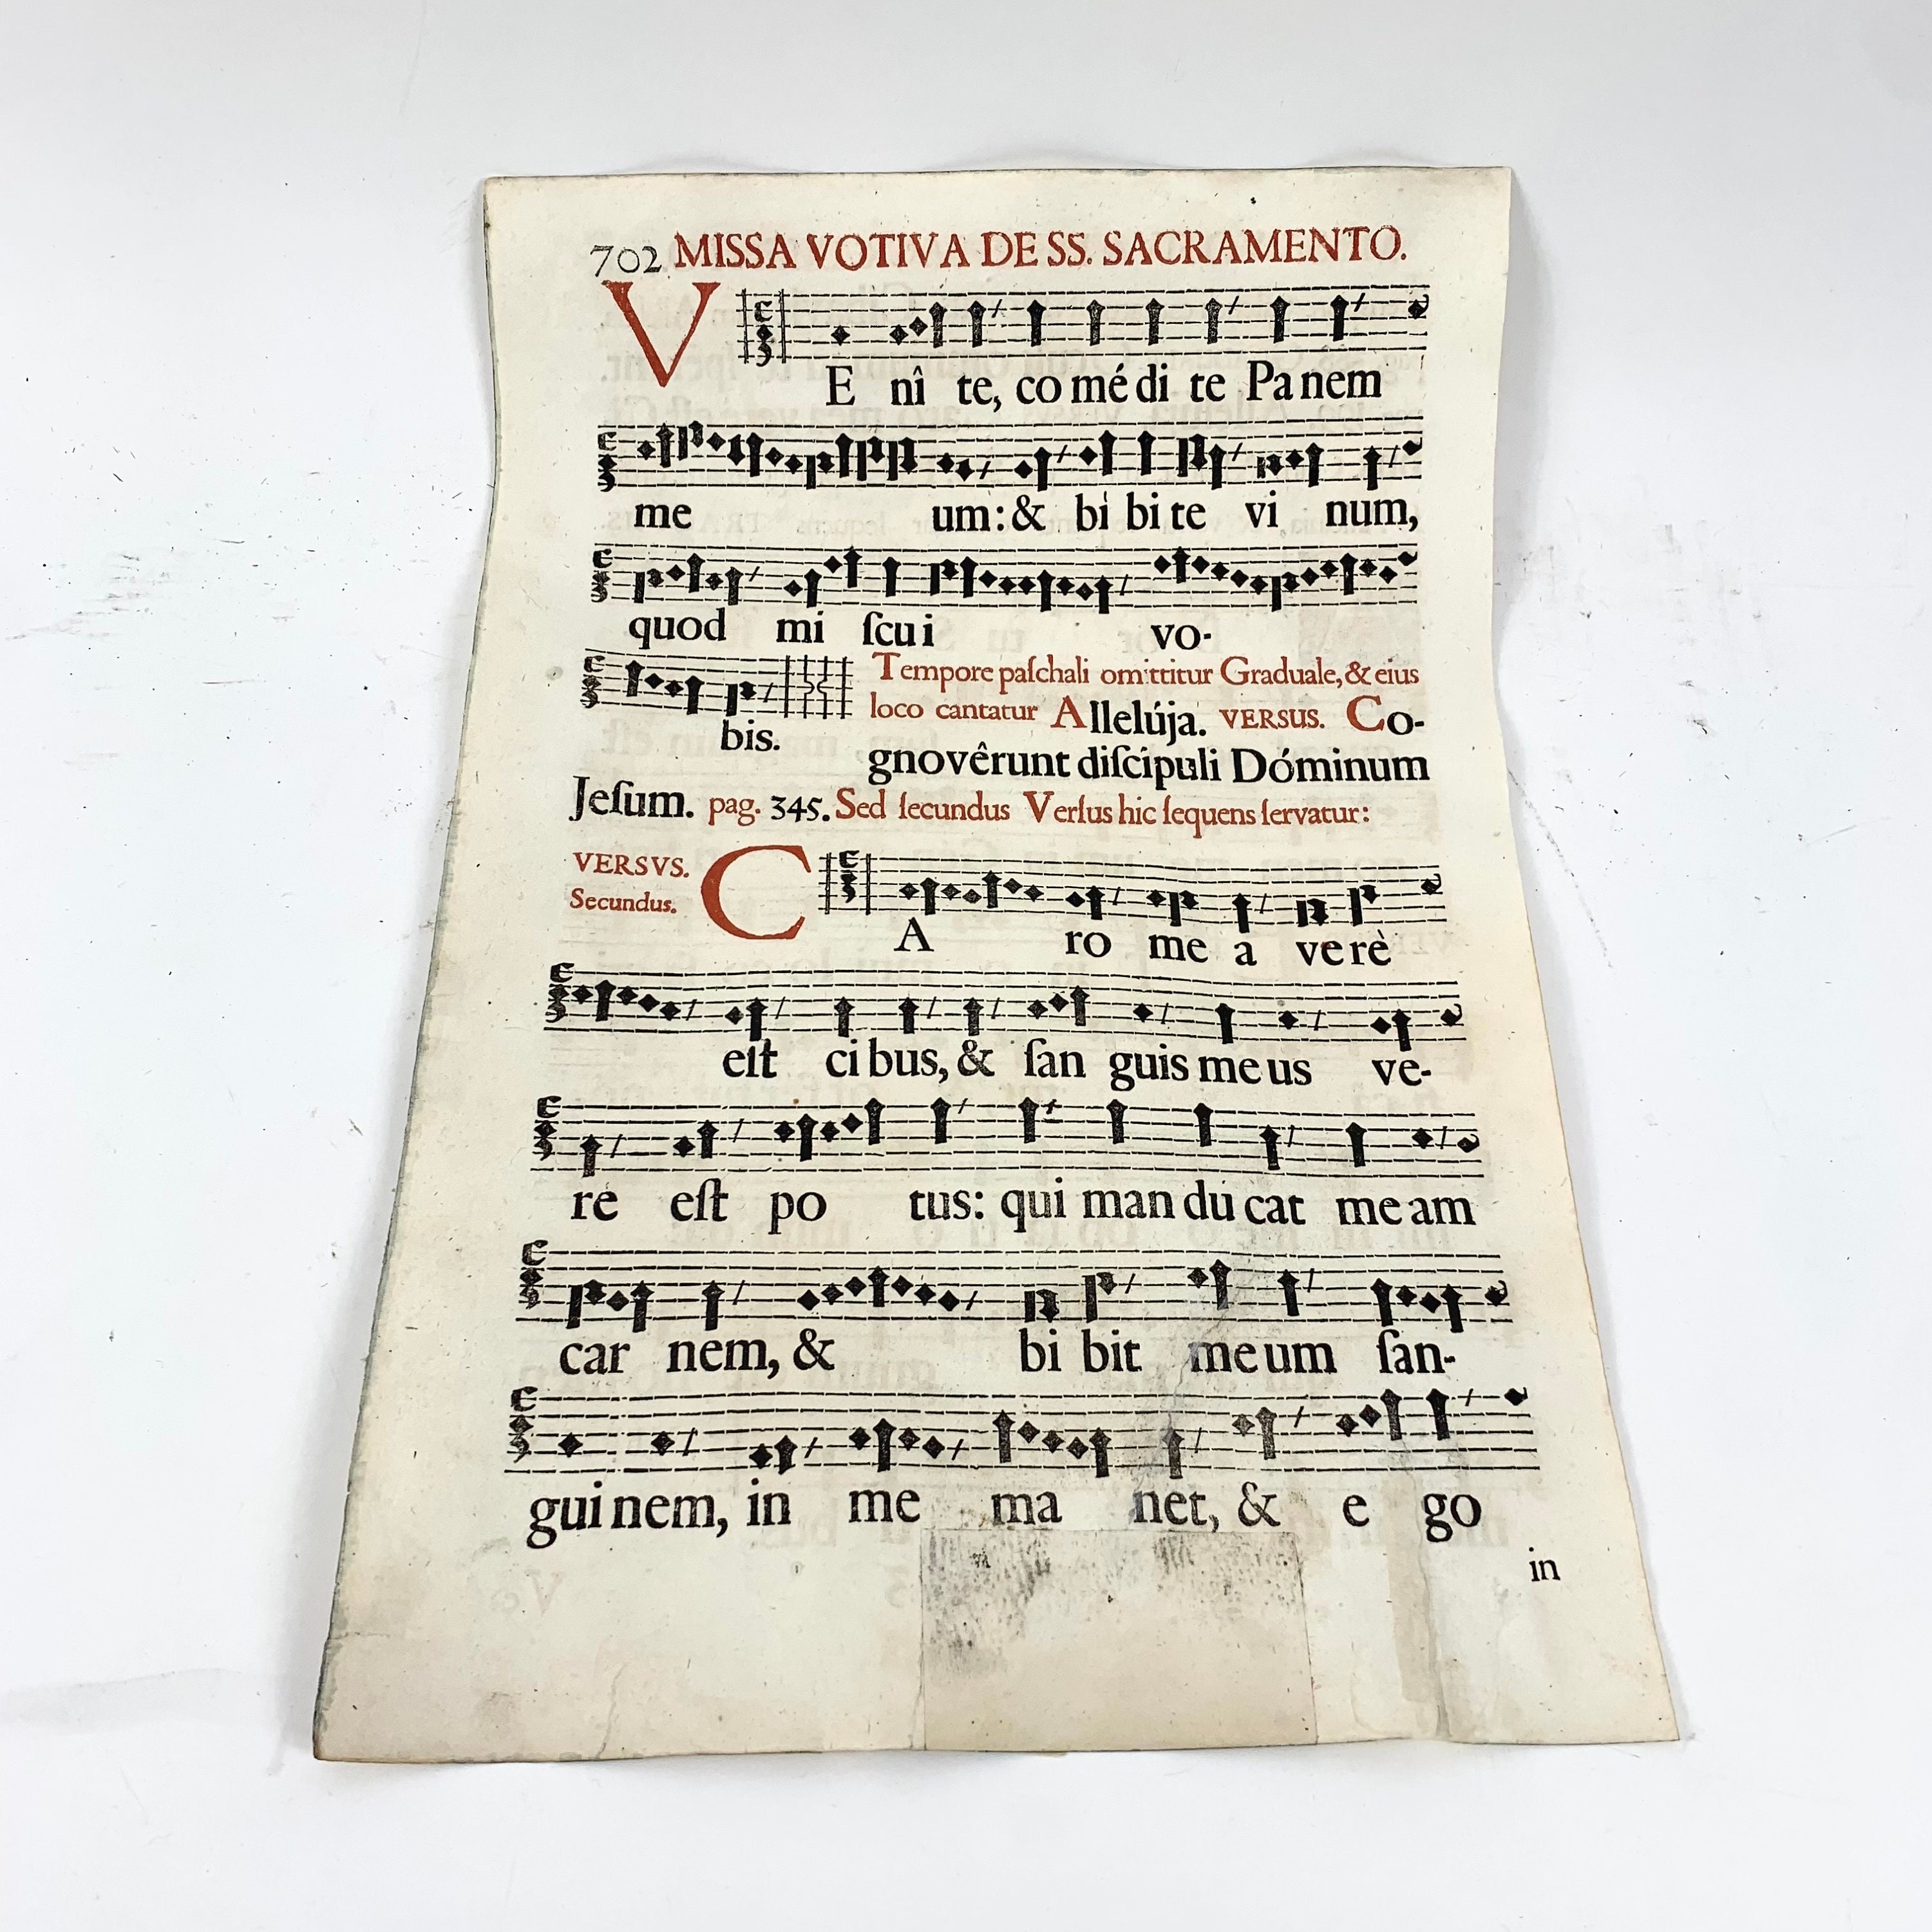 702 MISSA VOTIVA DE SS. SACRAMENTO.
VE nî te, co mé di te Pa nem
me um: & bi bi te vi num,
quod mi ſcu i vo-
bis. Tempore paſchali omittitur Graduale, & eius
loco cantatur Allelúja. VERSUS. Co-
gnovêrunt diſcípuli Dóminum
Jeſum. pag. 345. Sed ſecundus Verſus hic ſequens ſervatur:
VERSVS.
Secundus.
CA ro me a ve rè
eſt ci bus, & ſan guis me us ve-
re eſt po tus: qui man du cat me am
car nem, & bi bit me um ſan-
gui nem, in me ma net, & e go
in